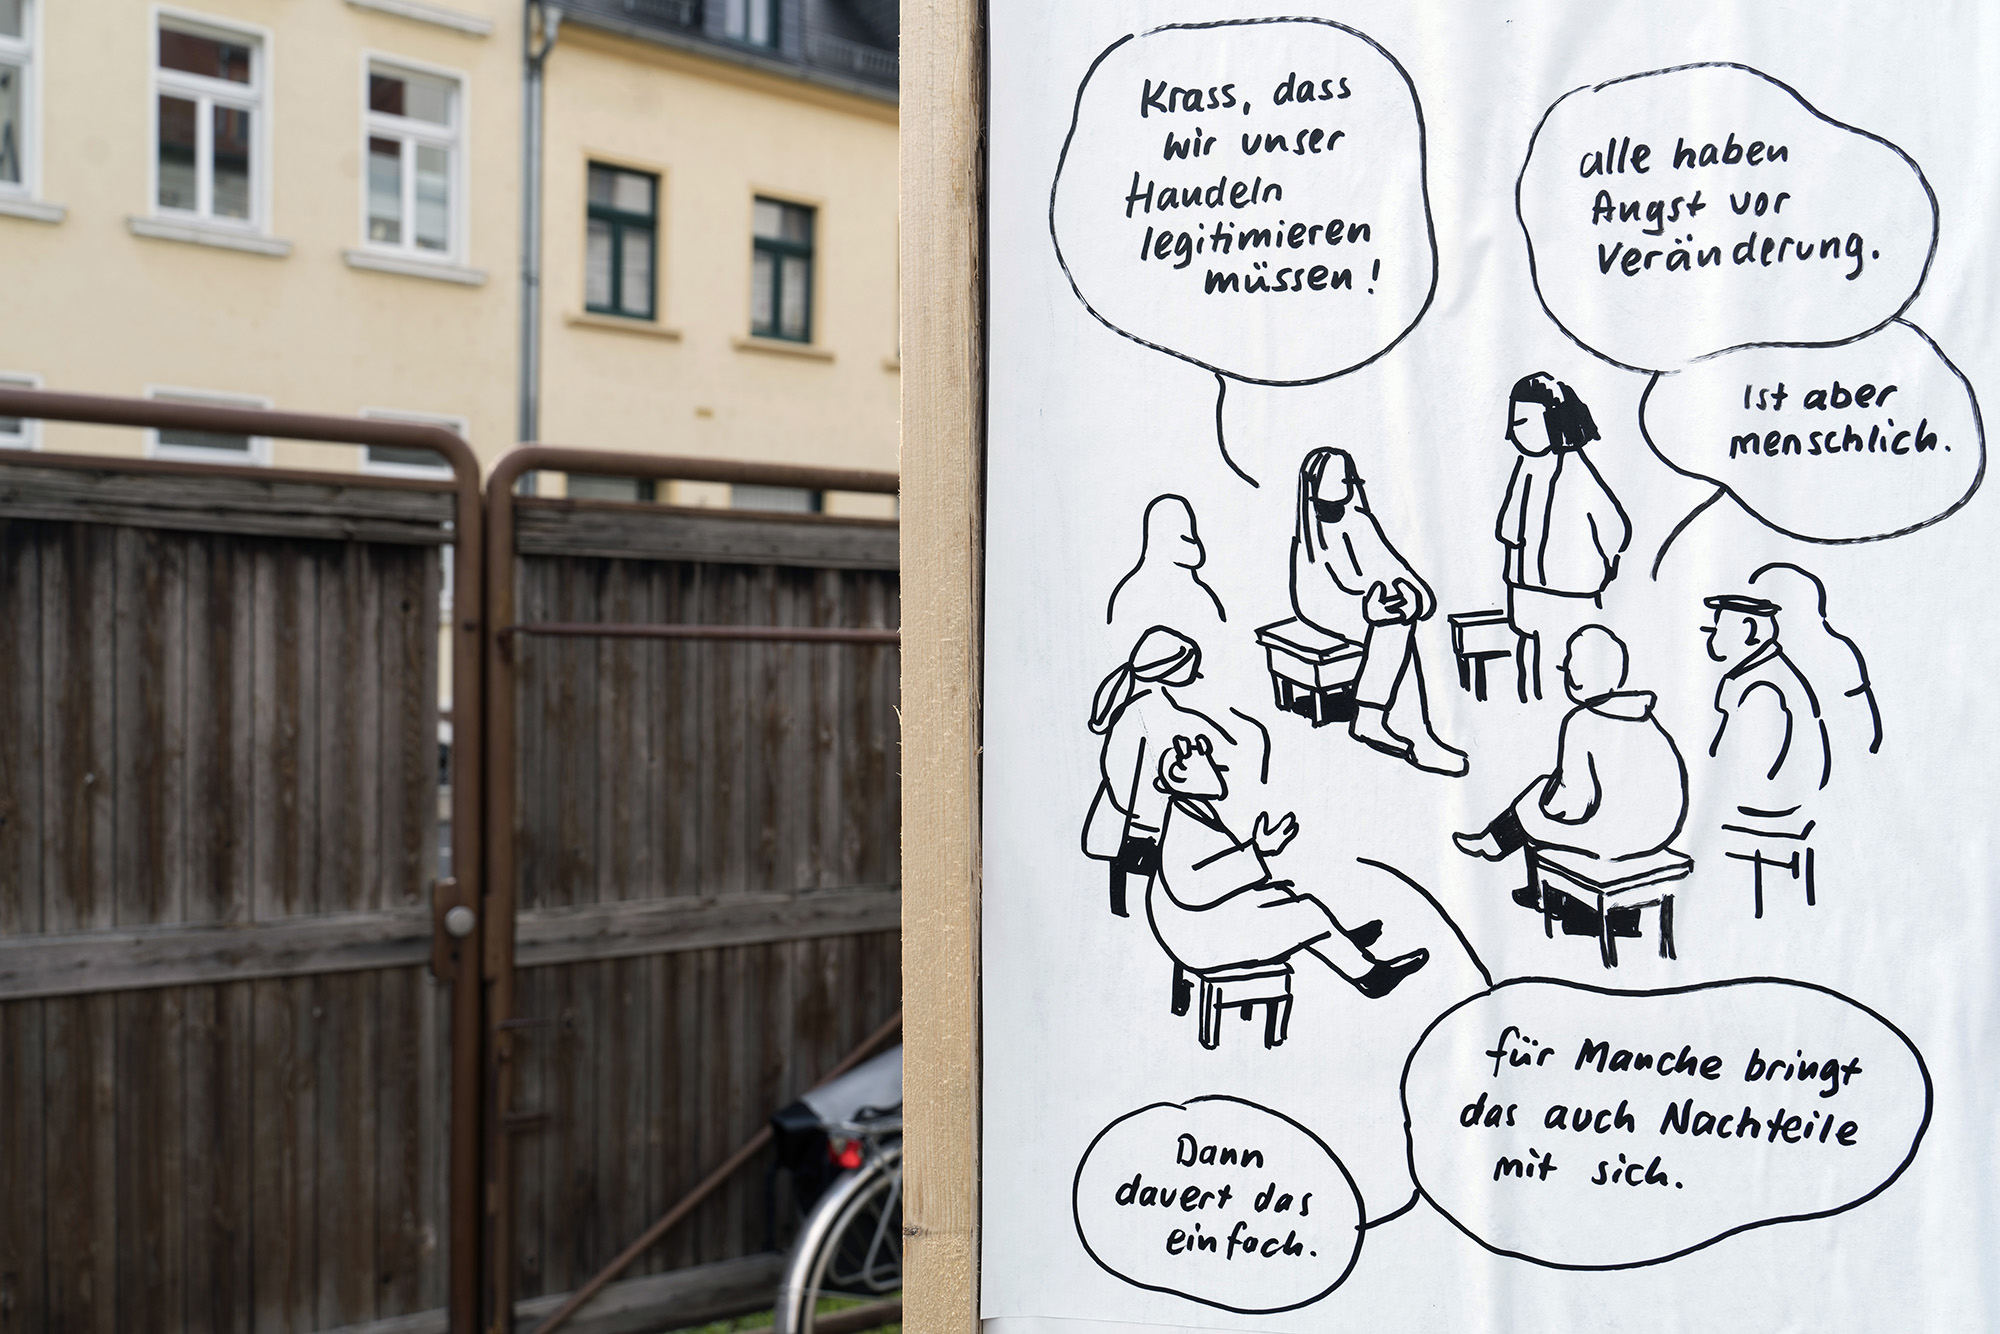 Krass, dass
wir unser
Handeln
legitimieren
müssen!
alle haben
Angst vor
Veränderung.
Ist aber
menschlich.
für Manche bringt
das auch Nachteile
mit sich.
Dann
dauert das
einfach.